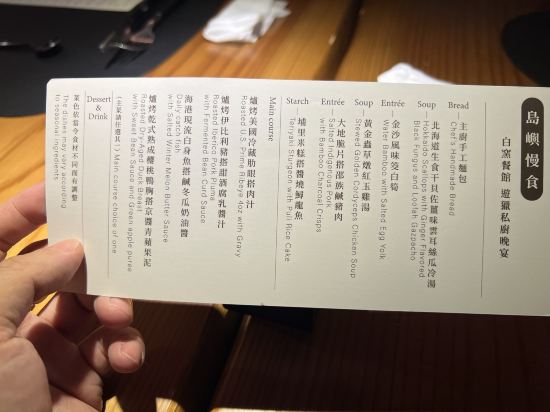 島嶼慢食
白窯餐館 遊獵私廚晚宴
Bread
主廚手工麵包
Chef's Handmade Bread
Soup
北海道生食干貝佐薑味雲耳絲瓜冷湯
Hokkaido Scallops with Ginger Flavored
Black Fungus and Loofah Gazpacho
Entrée
金沙風味筊白筍
Water Bamboo with Salted Egg Yolk
Soup
黃金蟲草燉紅玉雞湯
Stewed Golden Cordyceps Chicken Soup
Entrée
大地脆片搭邵族鹹豬肉
Salted Indigenous Pork
with Bamboo Charcoal Crisps
Starch
埔里米糕搭醬燒鱘龍魚
Teriyaki Sturgeon with Puli Rice Cake
Main course
爐烤美國冷藏肋眼搭肉汁
Roasted U.S. Prime Ribeye 4oz with Gravy
爐烤伊比利豬搭甜酒腐乳醬汁
Roasted Iberico Pork Pluma
with Fermented Bean Curd Sauce
海港現流白身魚搭鹹冬瓜奶油醬
Daily catch fish
with Salted Winter Melon Butter Sauce
爐烤乾式熟成櫻桃鴨胸搭京醬青蘋果泥
Roasted Dry-Aged Duck Breast
with Sweet Bean Sauce and Green apple puree
(主菜請任選其1) Main course choice of one
Dessert
&
Drink
菜色依當令食材不同而有調整
The dishes may vary according
to seasonal ingredients